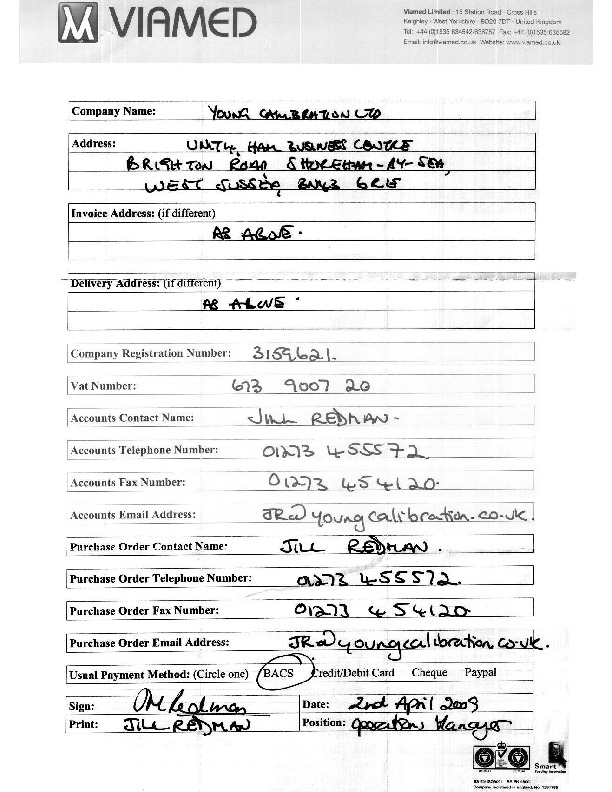 VIAMED
Viamed Limited · 15 Station Road · Cross Hills
Keighley · West Yorkshire · BD20 7DT · United Kingdom
Tel: +44 (0)1535 634542 Fax: +44 (0)1535 635582
Email: info@viamed.co.uk Website: www.viamed.co.uk
Company Name: YOUNG CALIBRATION LTD
Address: UNIT 4, HAM BUSINESS CENTRE
BRIGHTON ROAD SHOREHAM-BY-SEA,
WEST SUSSEX, BN43 6RE
Invoice Address: (if different)
AS ABOVE.
Delivery Address: (if different)
AS ABOVE.
Company Registration Number: 3159621.
Vat Number: 673 9007 20
Accounts Contact Name: JILL REDMAN-
Accounts Telephone Number: 01273 455572
Accounts Fax Number: 01273 454120.
Accounts Email Address: JR@youngcalibration.co.uk.
Purchase Order Contact Name: JILL REDMAN.
Purchase Order Telephone Number: 01273 455572.
Purchase Order Fax Number: 01273 454120
Purchase Order Email Address: JR@youngcalibration.co.uk.
Usual Payment Method: (Circle one) BACS Credit/Debit Card Cheque Paypal
Sign: Redman Date: 2nd April 2009
Print: JILL REDMAN Position: Operations Manager
Smart